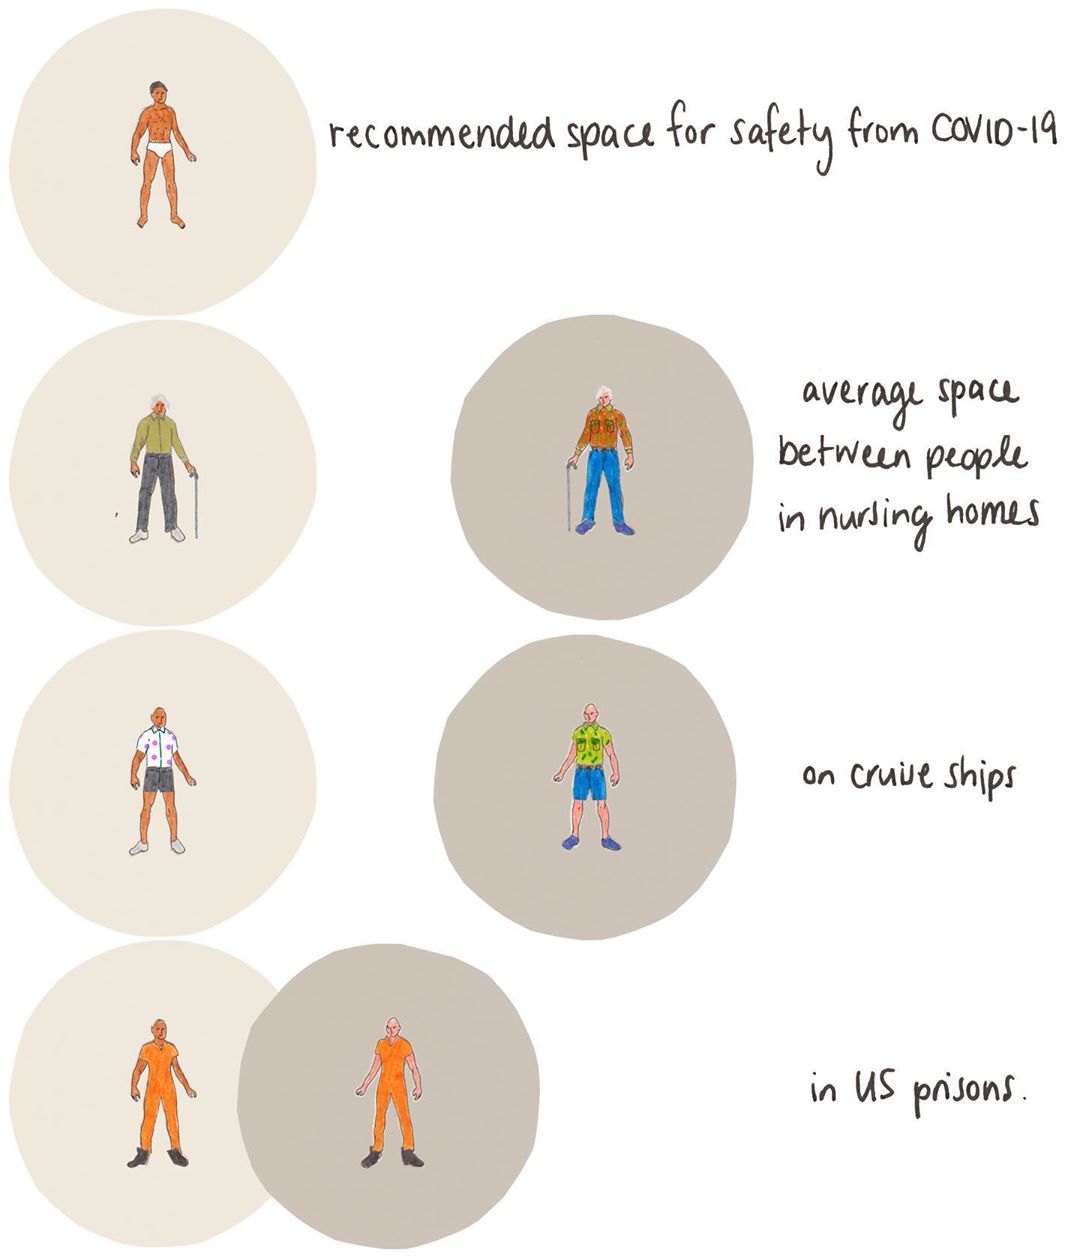 recommended space for safety from COVID-19
average space
between people
in nursing homes
on cruise ships
in US prisons.